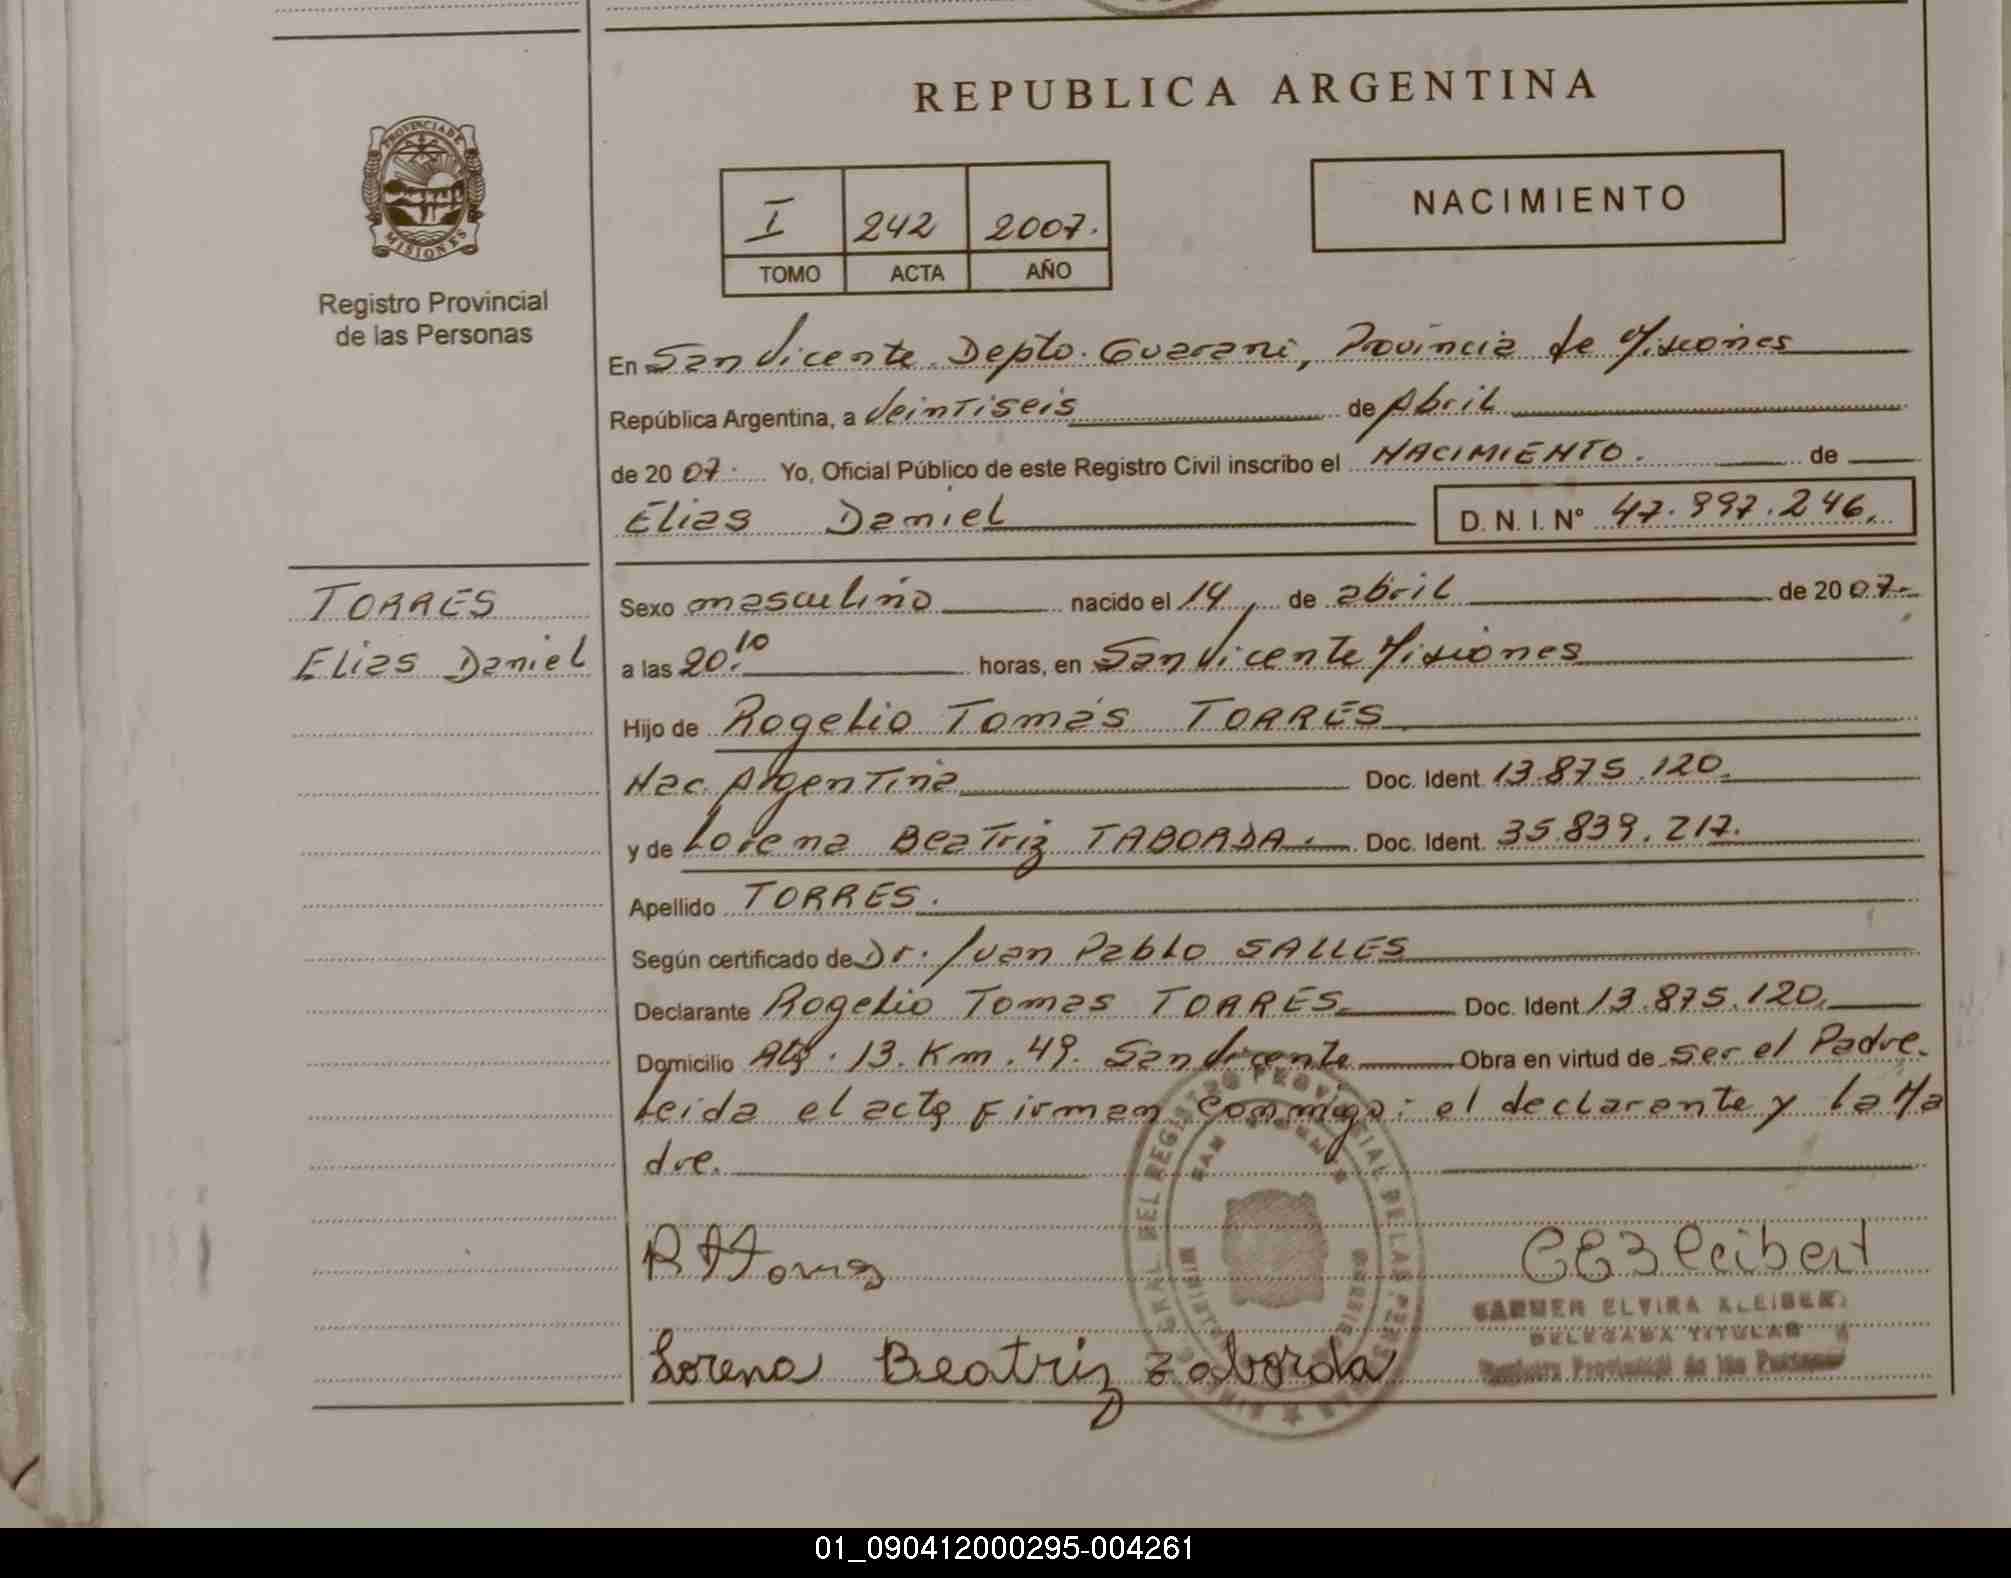 REPUBLICA ARGENTINA
PROVINCIA DE
MISIONES
Registro Provincial
de las Personas
I 242 2007.
TOMO ACTA AÑO
NACIMIENTO
En San Vicente Depto. Guarani, Provincia de Misiones
República Argentina, a Veintiseis de Abril
de 2007. Yo, Oficial Público de este Registro Civil inscribo el NACIMIENTO. de
Elias Daniel D. N. I. Nº 47.997.246.
TORRES
Elias Daniel
Sexo masculino nacido el 14 de abril de 2007.
a las 20.10 horas, en San Vicente Misiones
Hijo de Rogelio Tomás TORRES
Nac. Argentina Doc. Ident. 13.875.120.
y de Lorena Beatriz TABORDA. Doc. Ident. 35.839.217.
Apellido TORRES.
Según certificado de Dr. Juan Pablo SALLES
Declarante Rogelio Tomas TORRES. Doc. Ident. 13.875.120.
Domicilio Alq. 13. Km. 49. San Vicente Obra en virtud de ser el Padre.
Leida el acta Firman conmigo: el declarante y la Ma
dre.
Lorena Beatriz Taborda
CARMEN ELVIRA KLEIBERT
DELEGADA TITULAR
Registro Provincial de las Personas
01_090412000295-004261